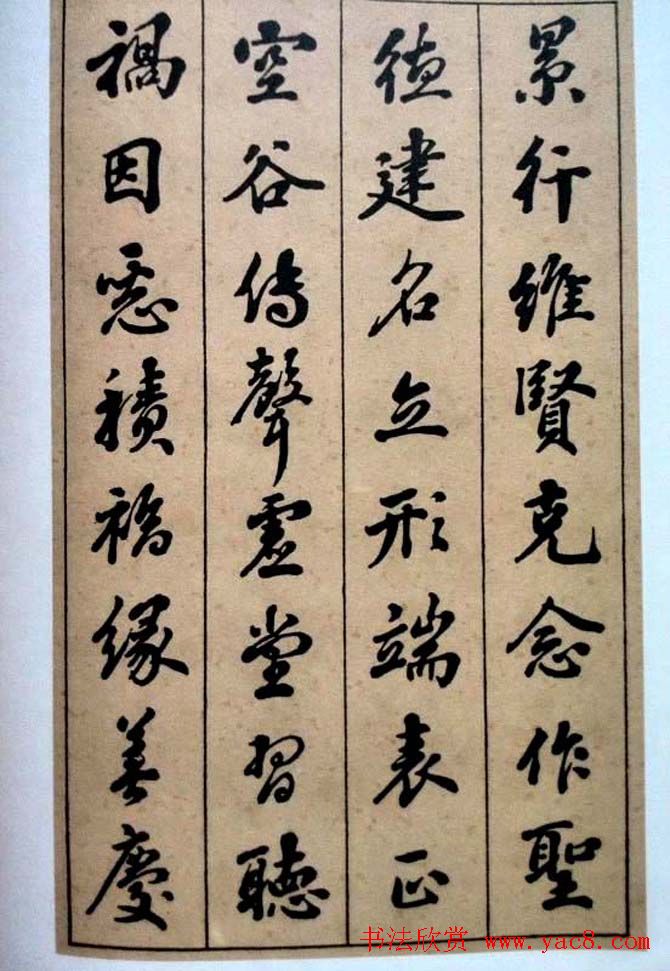 景行維賢克念作聖
德建名立形端表正
空谷傳聲虛堂習聽
禍因惡積福緣善慶
书法欣赏 www.yac8.com